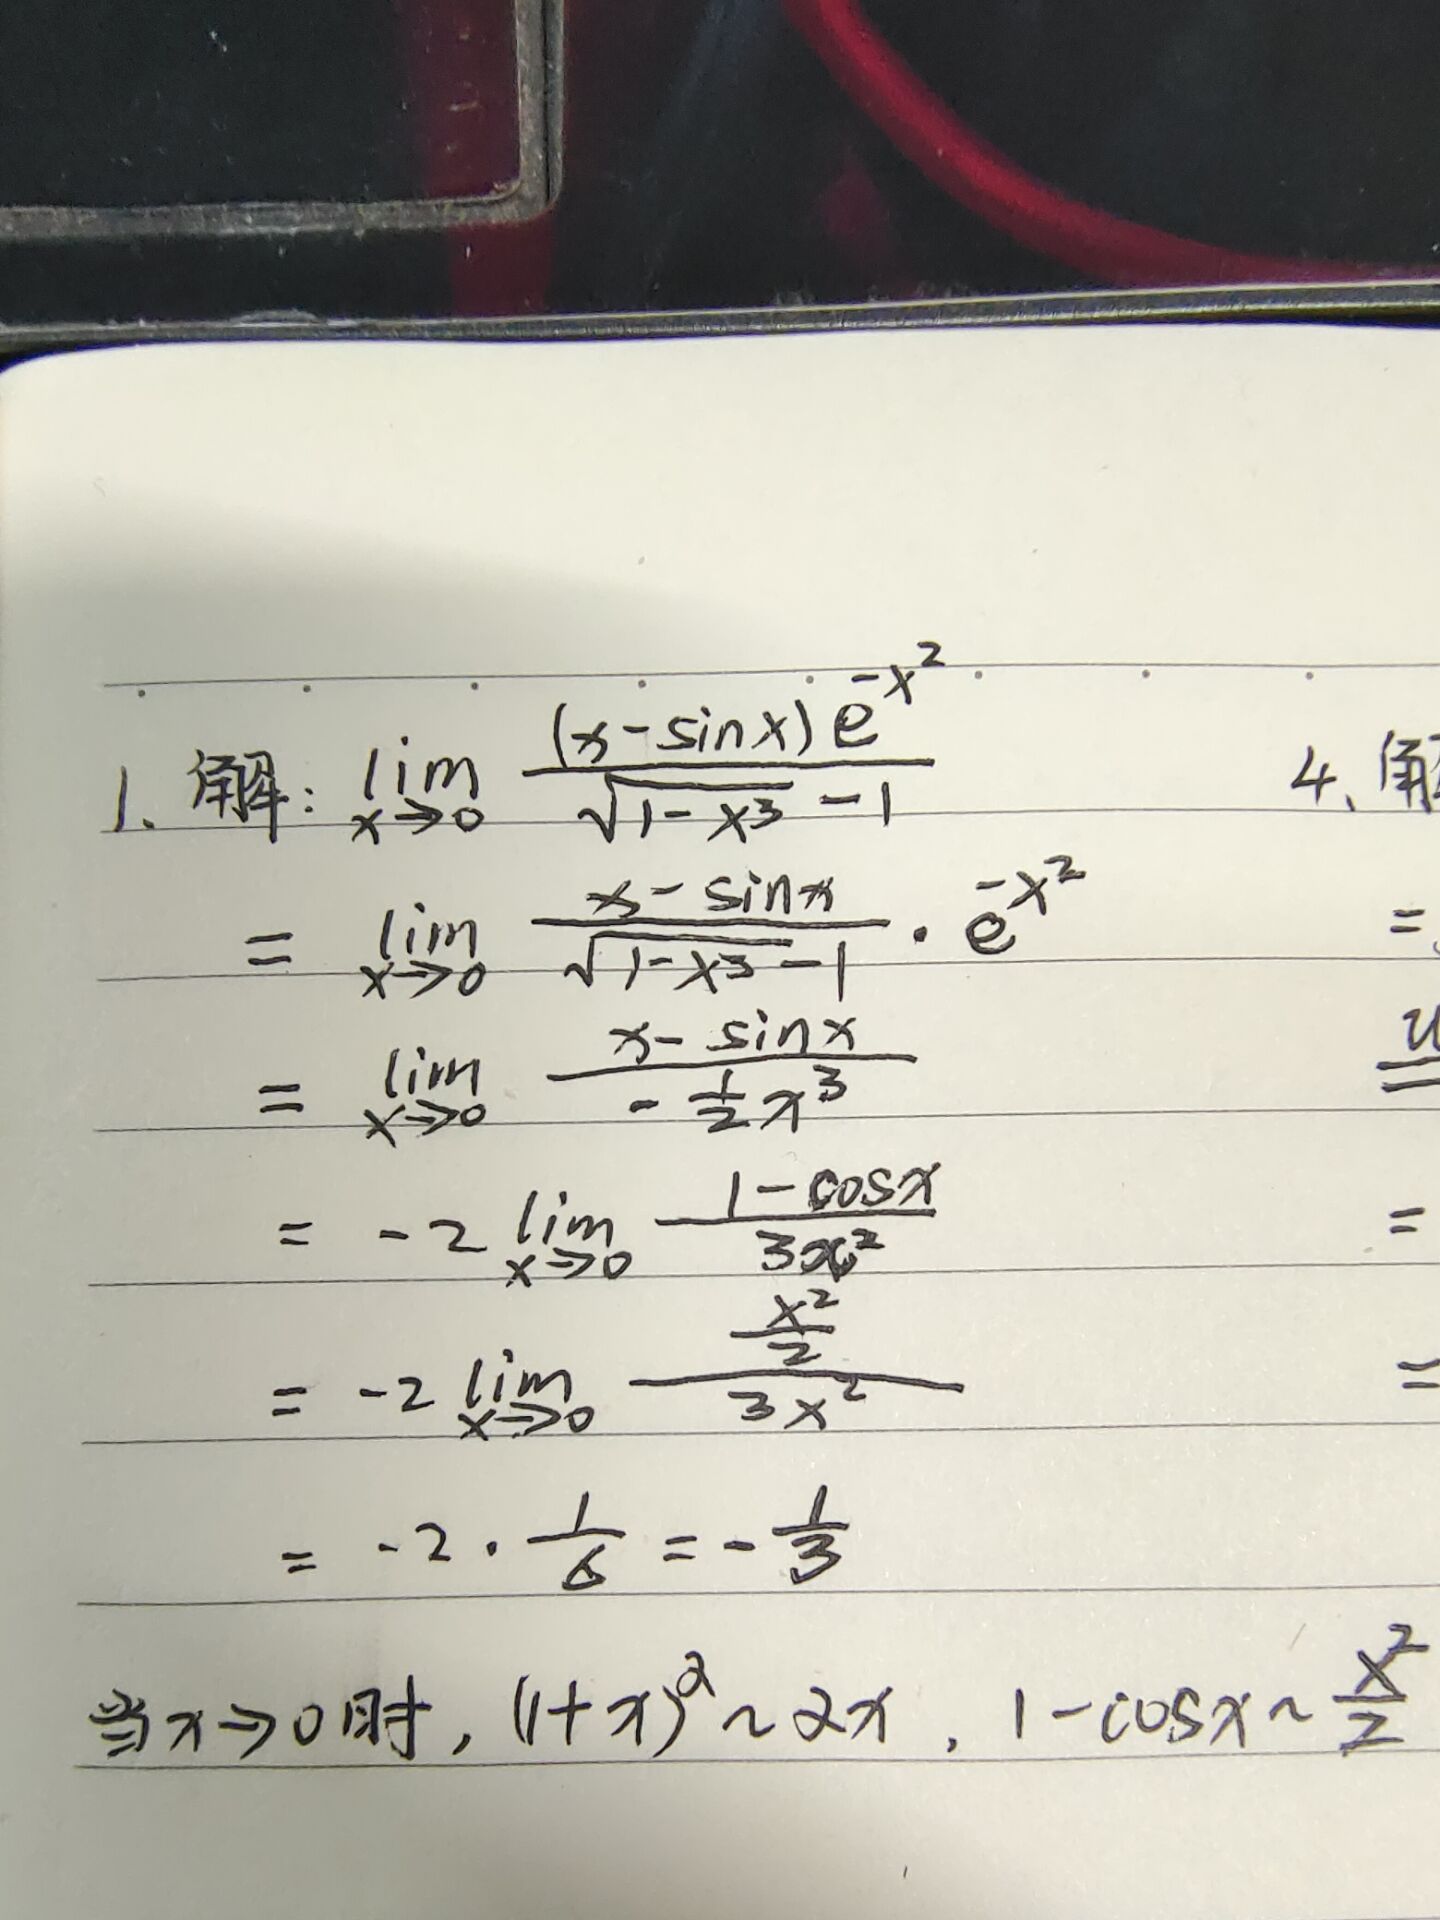 1、解: lim_{x→0} \frac{(x-sinx)e^{-x^2}}{\sqrt{1-x^3}-1}
4、解
= lim_{x→0} \frac{x-sinx}{\sqrt{1-x^3}-1} · e^{-x^2}
=
= lim_{x→0} \frac{x-sinx}{-\frac{1}{2}x^3}
= -2 lim_{x→0} \frac{1-cosx}{3x^2}
=
= -2 lim_{x→0} \frac{\frac{x^2}{2}}{3x^2}
=
= -2 · \frac{1}{6} = -\frac{1}{3}
当x→0时, (1+x)^2 ~ 2x, 1-cosx ~ \frac{x^2}{2}